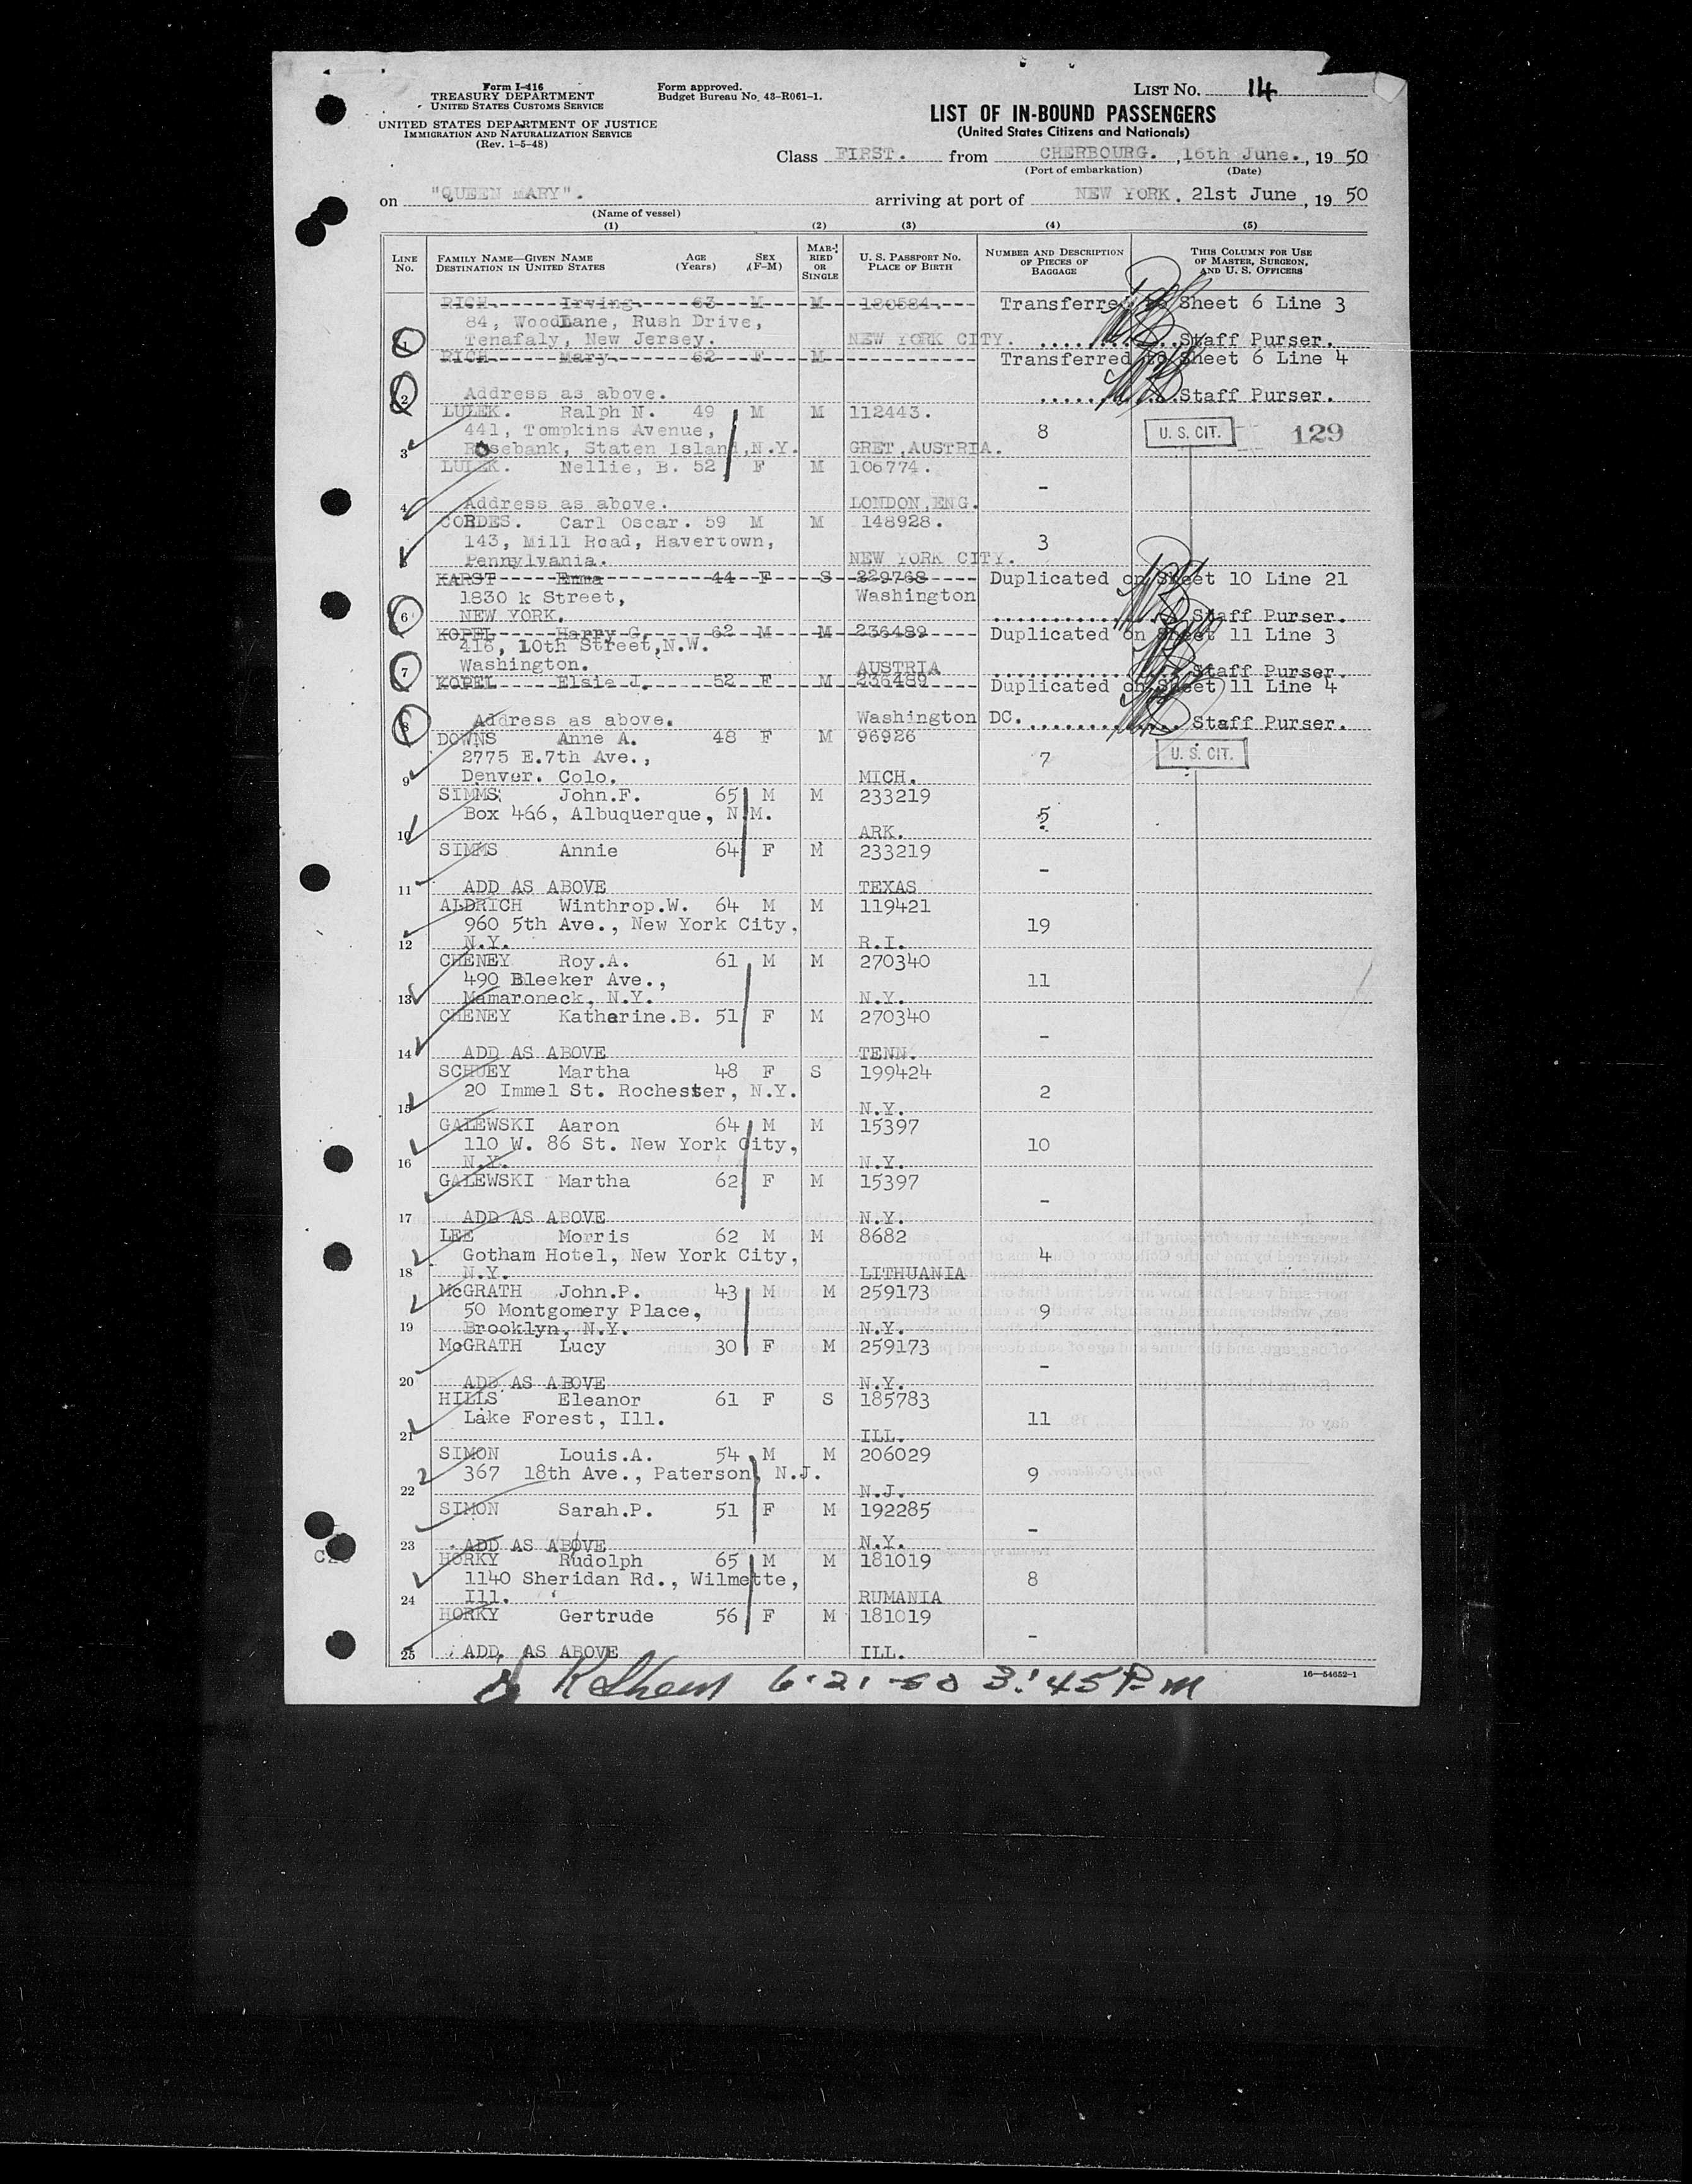 Form I-416
TREASURY DEPARTMENT
UNITED STATES CUSTOMS SERVICE
UNITED STATES DEPARTMENT OF JUSTICE
IMMIGRATION AND NATURALIZATION SERVICE
(Rev. 1-5-48)
Form approved.
Budget Bureau No. 43-R061-1.
LIST NO. 14
LIST OF IN-BOUND PASSENGERS
(United States Citizens and Nationals)
Class FIRST. from CHERBOURG. , 16th June. , 19 50
(Port of embarkation) (Date)
on "QUEEN MARY". arriving at port of NEW YORK. 21st June , 19 50
(Name of vessel)
(1) (2) (3) (4) (5)
LINE NO. FAMILY NAME—GIVEN NAME DESTINATION IN UNITED STATES AGE (Years) SEX (F-M) MARRIED OR SINGLE U. S. PASSPORT NO. PLACE OF BIRTH NUMBER AND DESCRIPTION OF PIECES OF BAGGAGE THIS COLUMN FOR USE OF MASTER, SURGEON, AND U. S. OFFICERS
RICH Irving 63 M M 180584 Transferred to Sheet 6 Line 3
84, Wood Lane, Rush Drive,
1 Tenafaly, New Jersey. NEW YORK CITY. Staff Purser.
RICH Mary 62 F M Transferred to Sheet 6 Line 4
2 Address as above. Staff Purser.
LULEK. Ralph N. 49 M M 112443.
441, Tompkins Avenue, 8 U. S. CIT. 129
3 Rosebank, Staten Island, N.Y. GRET, AUSTRIA.
LULEK. Nellie, B. 52 F M 106774.
-
4 Address as above. LONDON, ENG.
CORDES. Carl Oscar. 59 M M 148928.
143, Mill Road, Havertown, 3
Pennylvania. NEW YORK CITY.
KARST Emma 44 F S 229768 Duplicated on Sheet 10 Line 21
1830 k Street, Washington
6 NEW YORK. Staff Purser.
KOPEL Harry G. 62 M M 236489 Duplicated on Sheet 11 Line 3
416, 10th Street, N.W.
7 Washington. AUSTRIA Staff Purser.
KOPEL Elsie J. 52 F M 236489 Duplicated on Sheet 11 Line 4
8 Address as above. Washington DC. Staff Purser.
DOWNS Anne A. 48 F M 96926
2775 E.7th Ave., 7 U. S. CIT.
9 Denver. Colo. MICH.
SIMMS John.F. 65 M M 233219
Box 466, Albuquerque, N.M. 5
10 ARK.
SIMMS Annie 64 F M 233219
-
11 ADD AS ABOVE TEXAS
ALDRICH Winthrop.W. 64 M M 119421
960 5th Ave., New York City, 19
12 N.Y. R.I.
CHENEY Roy.A. 61 M M 270340
490 Bleeker Ave., 11
13 Mamaroneck, N.Y. N.Y.
CHENEY Katharine.B. 51 F M 270340
-
14 ADD AS ABOVE TENN.
SCHUEY Martha 48 F S 199424
20 Immel St. Rochester, N.Y. 2
15 N.Y.
GALEWSKI Aaron 64 M M 15397
110 W. 86 St. New York City, 10
16 N.Y. N.Y.
GALEWSKI Martha 62 F M 15397
-
17 ADD AS ABOVE N.Y.
LEE Morris 62 M M 8682
Gotham Hotel, New York City, 4
18 N.Y. LITHUANIA
McGRATH John.P. 43 M M 259173
50 Montgomery Place, 9
19 Brooklyn, N.Y. N.Y.
McGRATH Lucy 30 F M 259173
-
20 ADD AS ABOVE N.Y.
HILLS Eleanor 61 F S 185783
Lake Forest, Ill. 11
21 ILL.
SIMON Louis.A. 54 M M 206029
367 18th Ave., Paterson, N.J. 9
22 N.J.
SIMON Sarah.P. 51 F M 192285
-
23 ADD AS ABOVE N.Y.
HORKY Rudolph 65 M M 181019
1140 Sheridan Rd., Wilmette, 8
24 Ill. RUMANIA
HORKY Gertrude 56 F M 181019
-
25 ADD. AS ABOVE ILL.
16—54652-1
6-21-50 3:45 P.m